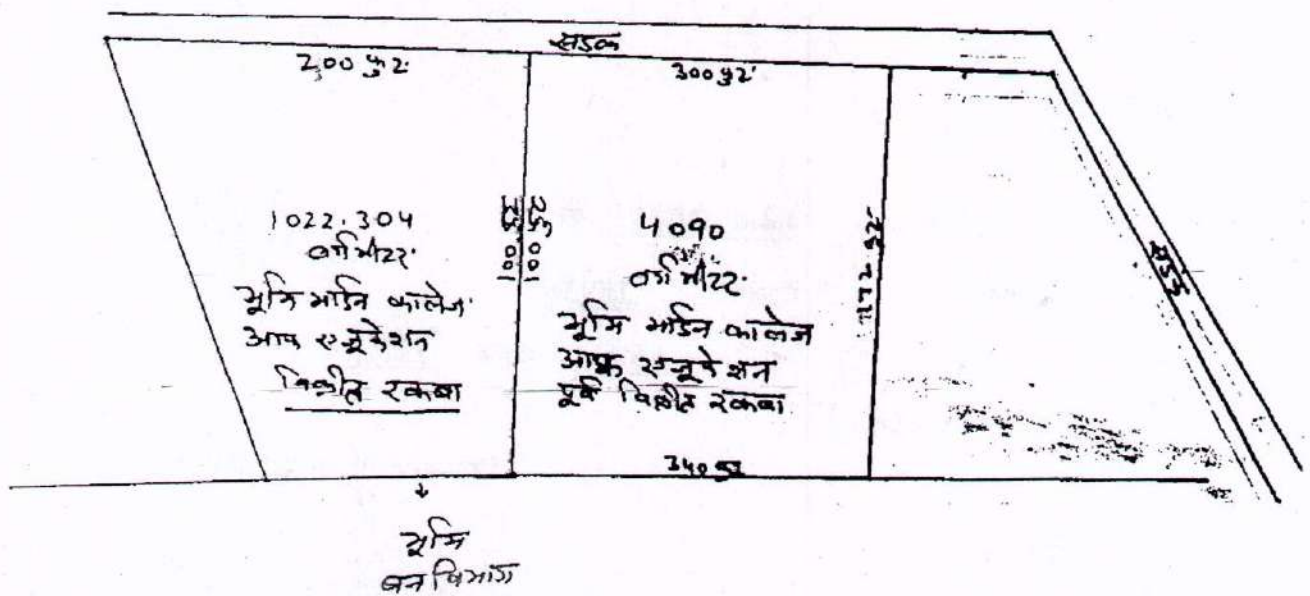 सडक
200 फुट
300 फुट
1022.304
वर्ग मीटर
भूमि मार्डन कालेज
आफ एजूकेशन
विक्रीत रकबा
100 फुट
100 फुट
4090
वर्ग मीटर
भूमि मार्डन कालेज
आफ एजूकेशन
पूर्व विक्रीत रकबा
172 फुट
सडक
340 फुट
भूमि
वन विभाग